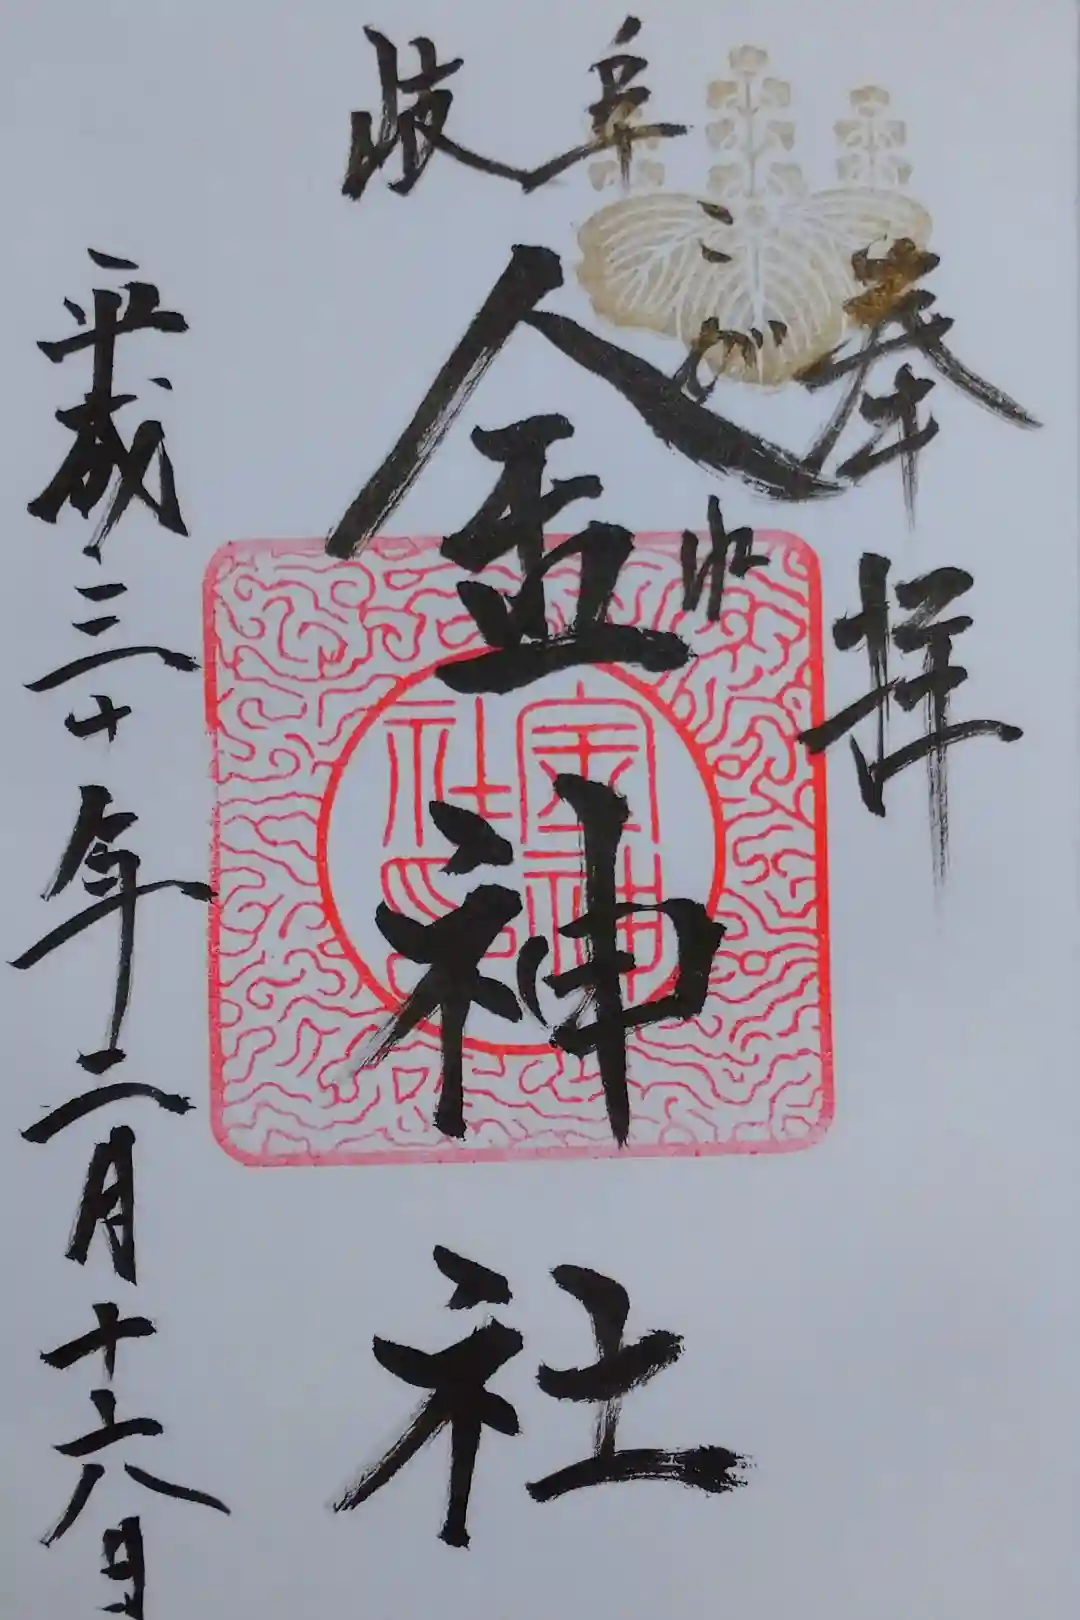 岐阜
奉拝
こがね
金神社
金神社印
平成三十年二月十六日